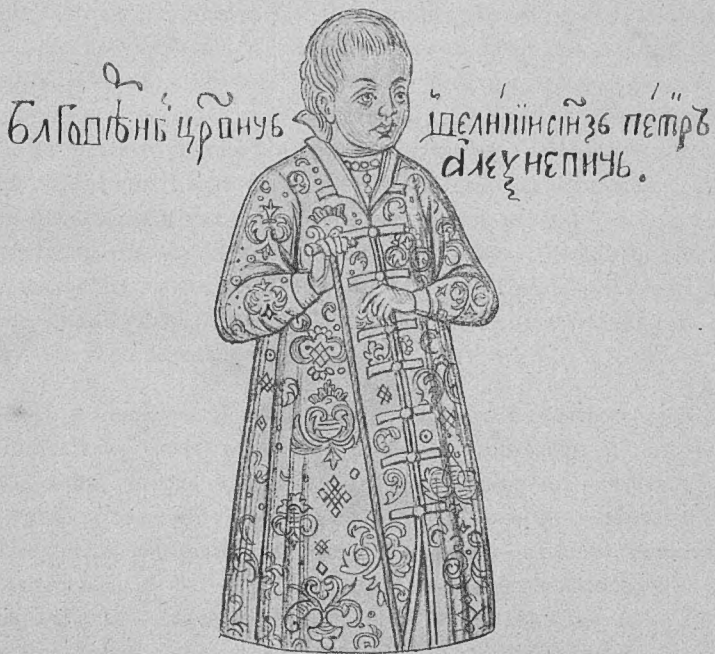 Благовѣнъ цр҃вичь ивеликиикн҃зь петръ
алеѯиевичь.